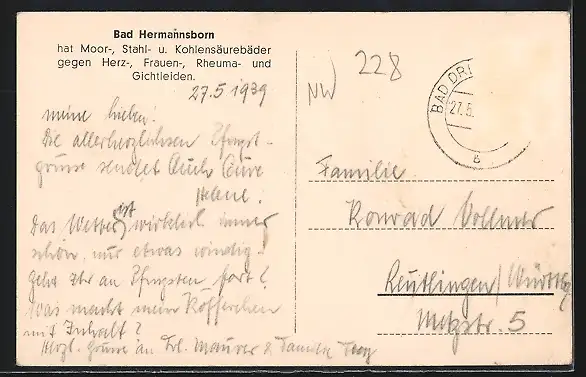 Bad Hermannsborn
hat Moor-, Stahl- u. Kohlensäurebäder
gegen Herz-, Frauen-, Rheuma- und
Gichtleiden.
27.5 1939
meine Lieben!
Die allerherzlichsten Pfingst-
grüsse sendet Euch Eure
Helene.
Das Wetter ist wirklich immer
schön, nur etwas windig.
Geht Ihr an Pfingsten fort?
Was macht mein Köfferchen
mit Inhalt?
Herzl. Grüsse an Frl. Maurer & Familie
NW
228
BAD DRI
27.5.
a
Familie
Konrad Vollmer
Reutlingen/Württbg
Metzstr. 5